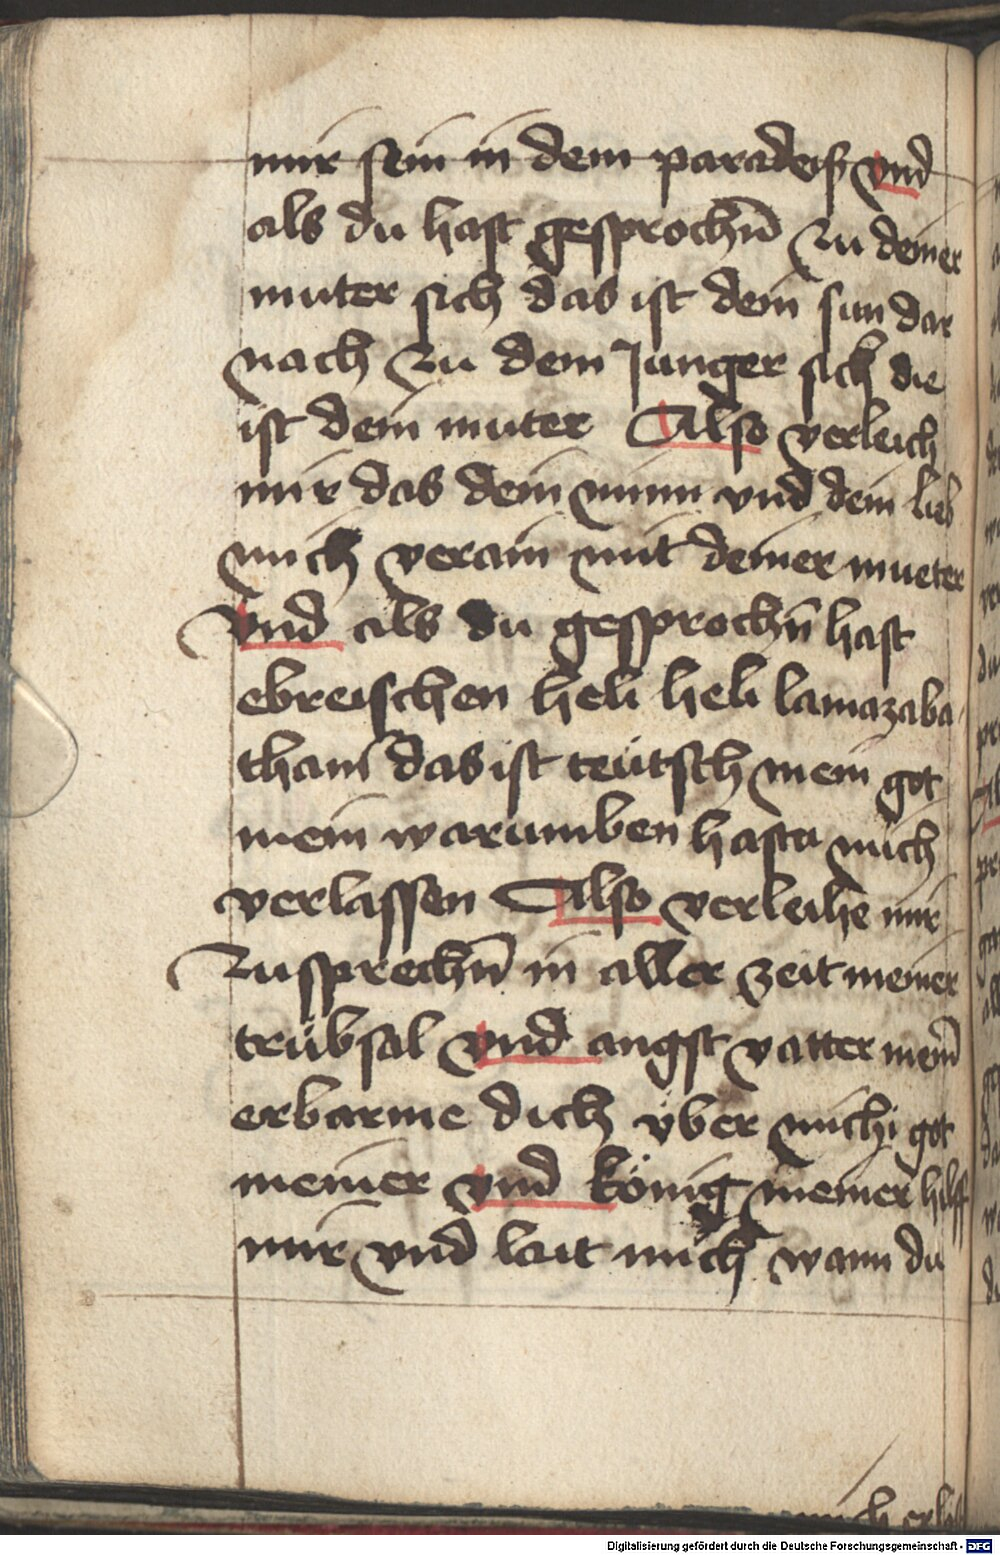 mir sein in dem paradeiß vnd
als du hast gesprochn̄ zu deiner
muter sich das ist dein sun dar
nach zu dem Junger sich die
ist dein muter Also verleich
mir das dein minn vnd dein lieb
mich verain mit deiner mueter
Vnd als du gesprochn̄ hast
ebreischen heli heli lamazaba
thani das ist teütsch mein got
mein warumben hastu mich
verlassen Also verleihe mir
zusprechn̄ in aller zeit meiner
trübsal vnd angst vatter mein̄
erbarme dich vber mich got
meiner vnd König meiner hilff
mir vnd lait mich wann du
Digitalisierung gefördert durch die Deutsche Forschungsgemeinschaft - DFG